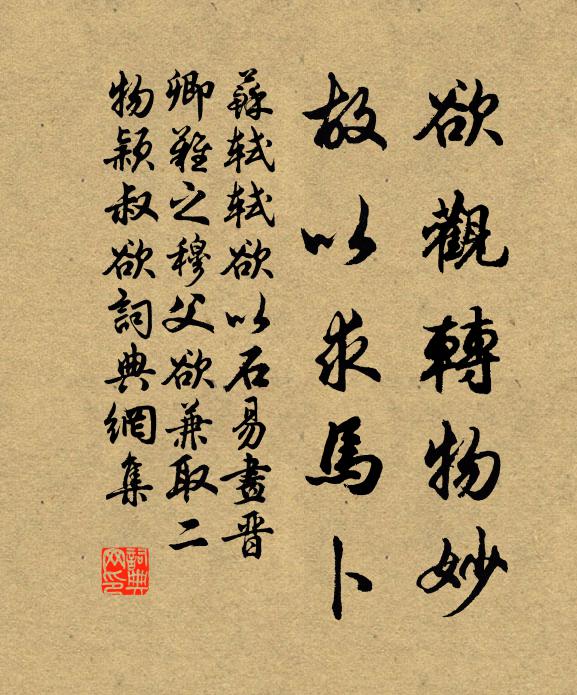 欲觀轉物妙
故以求馬卜
蘇軾軾欲以石易畫晉
卿難之穆父欲兼取二
物穎叔欲詞典網集
詞典网印